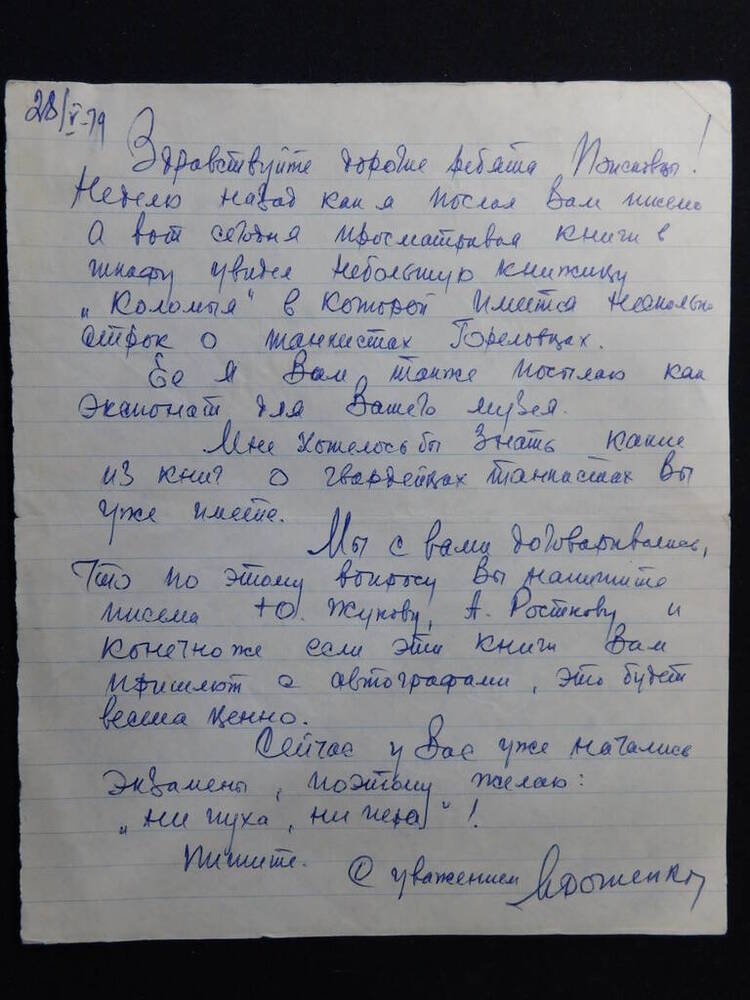 28/V-79
Здравствуйте дорогие ребята Поисковцы!
Неделю назад как я послал Вам письмо
А вот сегодня просматривая книги в
шкафу увидел небольшую книжицу
„Коломыя" в которой имеется несколько
строк о танкистах Гореловцах.
Ее я Вам также посылаю как
экспонат для Вашего музея.
Мне хотелось бы знать какие
из книг о гвардейцах танкистах Вы
уже имеете.
Мы с вами договаривались,
что по этому вопросу Вы напишите
письма Ю. Жукову, А. Росткову и
конечно же если эти книги Вам
пришлют с автографами, это будет
весьма ценно.
Сейчас у Вас уже начались
экзамены, поэтому желаю:
„ни пуха, ни пера"!
Пишите.
С уважением